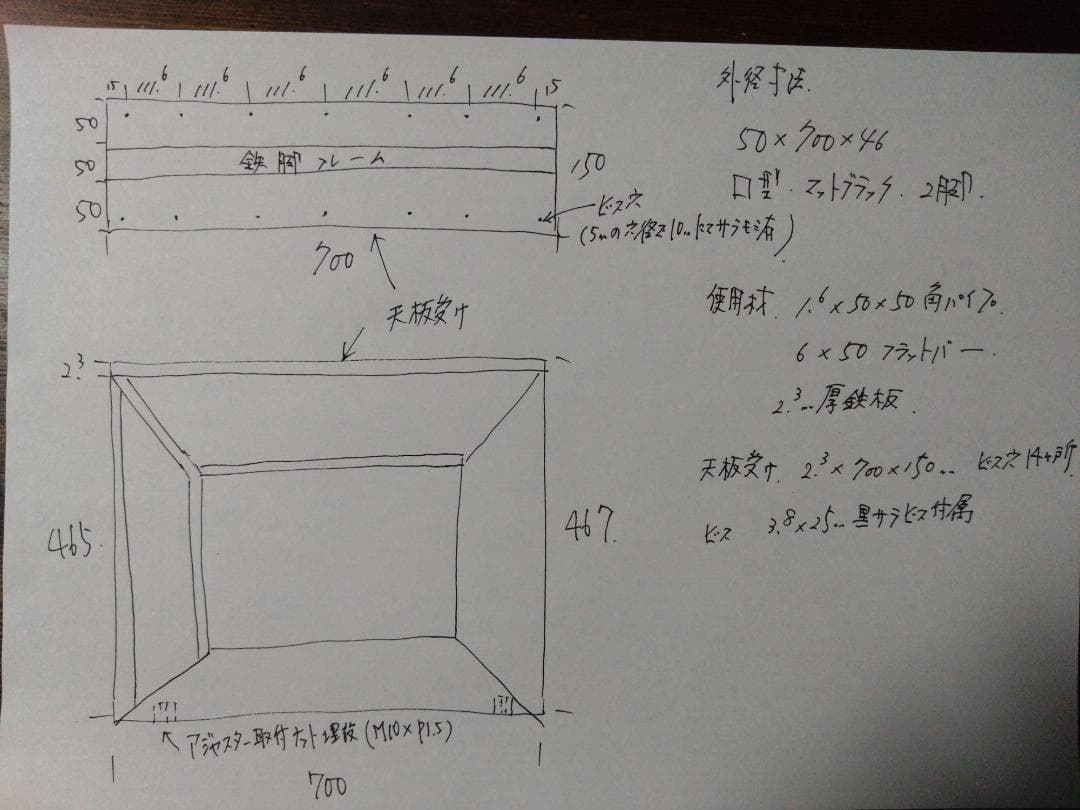 15 111.6 111.6 111.6 111.6 111.6 111.6 15
50
50 鉄脚フレーム 150
50
ビス穴
(5mmの穴径で10mmにてサラモミ有)
700
天板受け
2.3
465.
467.
アジャスター取付ナット埋設(M10×P1.5)
700
外径寸法.
50×700×46
ロ型.マットブラック.2脚.
使用材. 1.6×50×50角パイプ.
6×50 フラットバー.
2.3mm厚鉄板.
天板受け. 2.3×700×150mm ビス穴14ヶ所
ビス 3.8×25mm黒サラビス付属